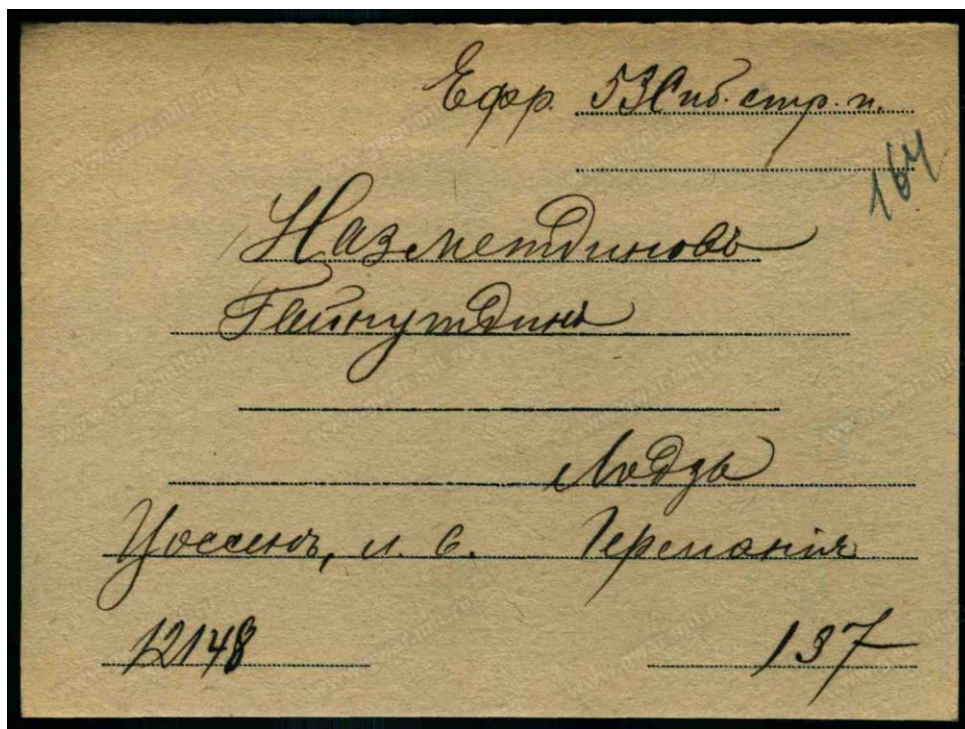 Ефр. 53 Сиб. стр. п.
164
Назметдиновъ
Гайнутдинъ
Лодзь
Цоссенъ, л. в. Германія
12148 137